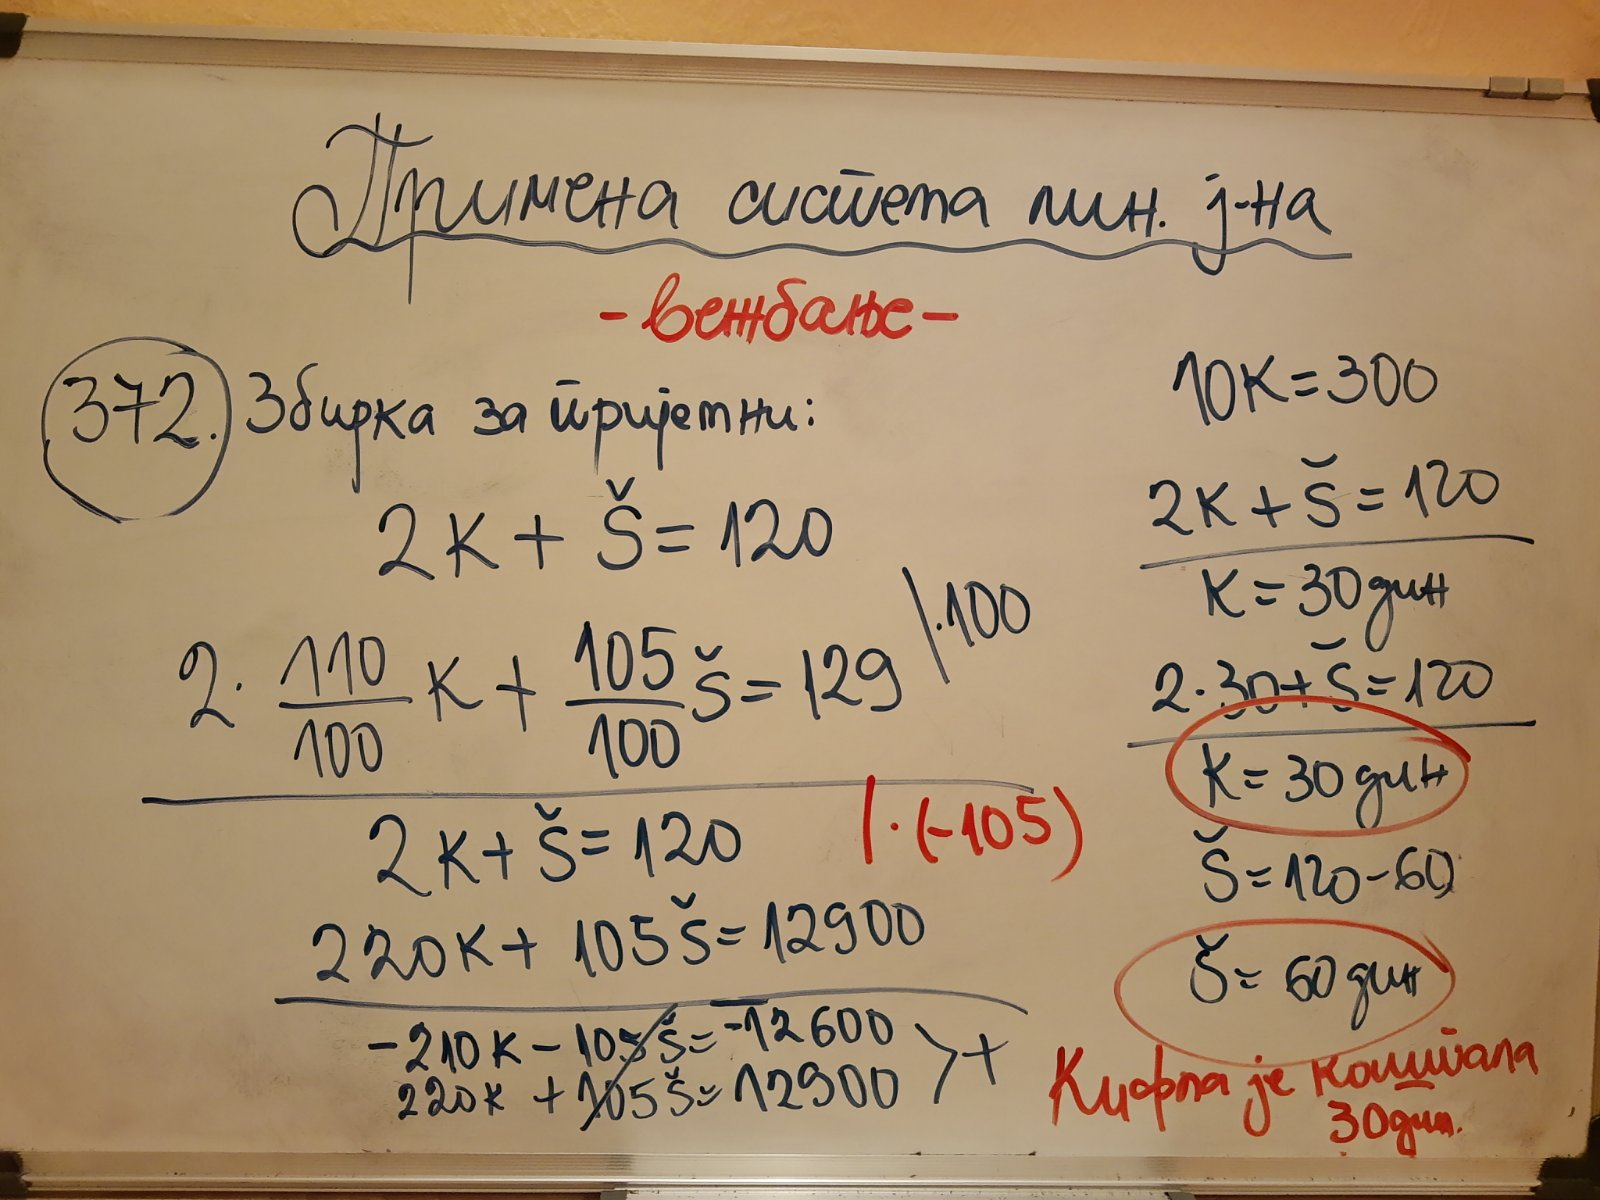 Примена система лин. ј-на
-вежбање-
372. Збирка за пријетни:
2K + Š = 120
2 · 110/100 K + 105/100 Š = 129 /·100
2K + Š = 120 /·(-105)
220K + 105Š = 12900
-210K - 105Š = -12600
220K + 105Š = 12900 >+
10K = 300
2K + Š = 120
K = 30 дин
2·30 + Š = 120
K = 30 дин
Š = 120 - 60
Š = 60 дин
Кифла је коштала
30 дин.